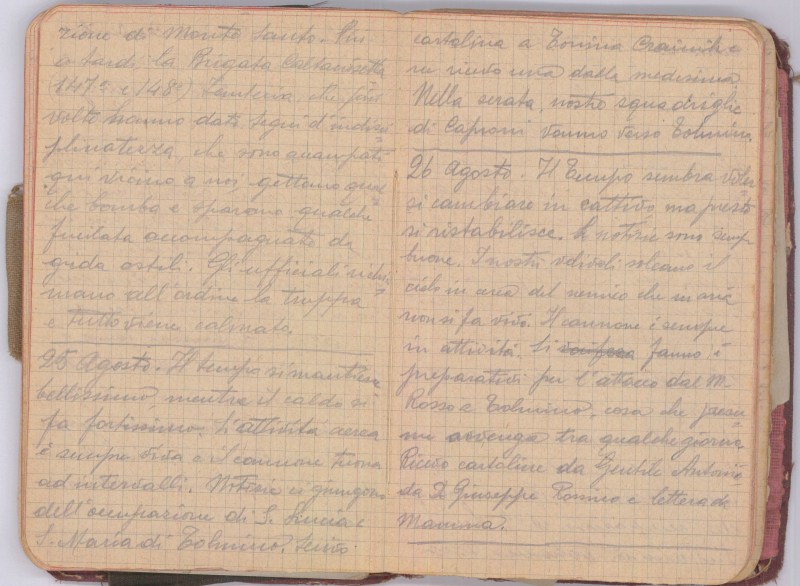 zione di Monte Santo. Più
tardi la Brigata Caltanissetta
(147º e 148º) fanteria, che più
volte hanno dato segni d'indisci
plinatezza, che sono accampati
qui vicino a noi gettano qual
che bomba e sparono qualche
fucilata accompagnato da
grida ostili. Gli ufficiali richia
mano all'ordine la truppa
e tutto viene calmato.
25 Agosto. Il tempo si mantiene
bellissimo, mentre il caldo si
fa fortissimo. L'attività aerea
è sempre viva e il cannone tuona
ad intervalli. Notizie ci giungono
dell'occupazione di S. Lucia e
S. Maria di Tolmino. Scrivo
cartolina a Tonina
ricevo una dalla medesima.
Nella serata, nostre squadriglie
di Caproni vanno verso Tolmino.
26 Agosto. Il Tempo sembra voler
si cambiare in cattivo, ma presto
si ristabilisce. Le notizie sono semp
buone. I nostri velivoli solcano il
cielo in cerca del nemico che in aria
non si fa vivo. Il cannone è sempre
in attività. Si fanno i
preparativi per l'attacco dal M.
Rosso a Tolmino, cosa che presu
mi avvenga tra qualche giorno.
Ricevo cartoline da Gentile Antonio
da D. Giuseppe Rosmo e lettera da
Mamma.